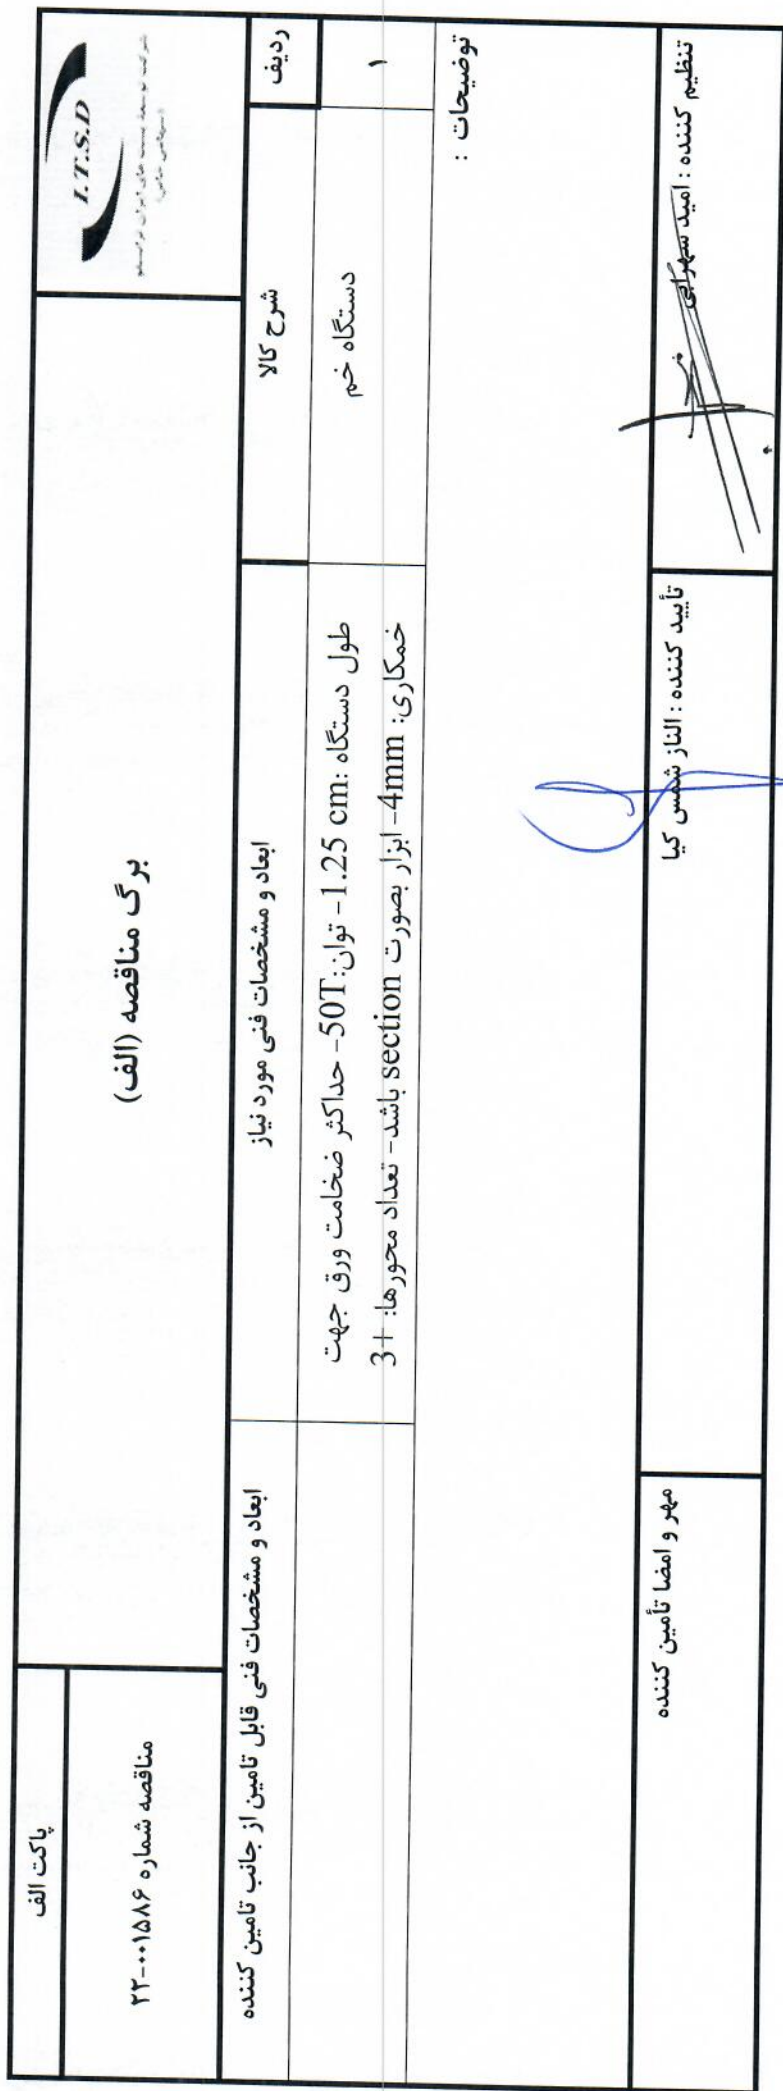 I.T.S.D
شرکت توسعه پست های ایران ترانسفو
(سهامی خاص)
برگ مناقصه (الف)
پاکت الف
مناقصه شماره ۰۰۱۵۸۶-۲۲
ردیف
شرح کالا
ابعاد و مشخصات فنی مورد نیاز
ابعاد و مشخصات فنی قابل تامین از جانب تامین کننده
۱
دستگاه خم
طول دستگاه :1.25 cm- توان:50T- حداکثر ضخامت ورق جهت
خمکاری: 4mm- ابزار بصورت section باشد- تعداد محورها: 3+1
توضیحات :
تنظیم کننده : امید سهرابی
تأیید کننده : الناز شمس کیا
مهر و امضا تأمین کننده